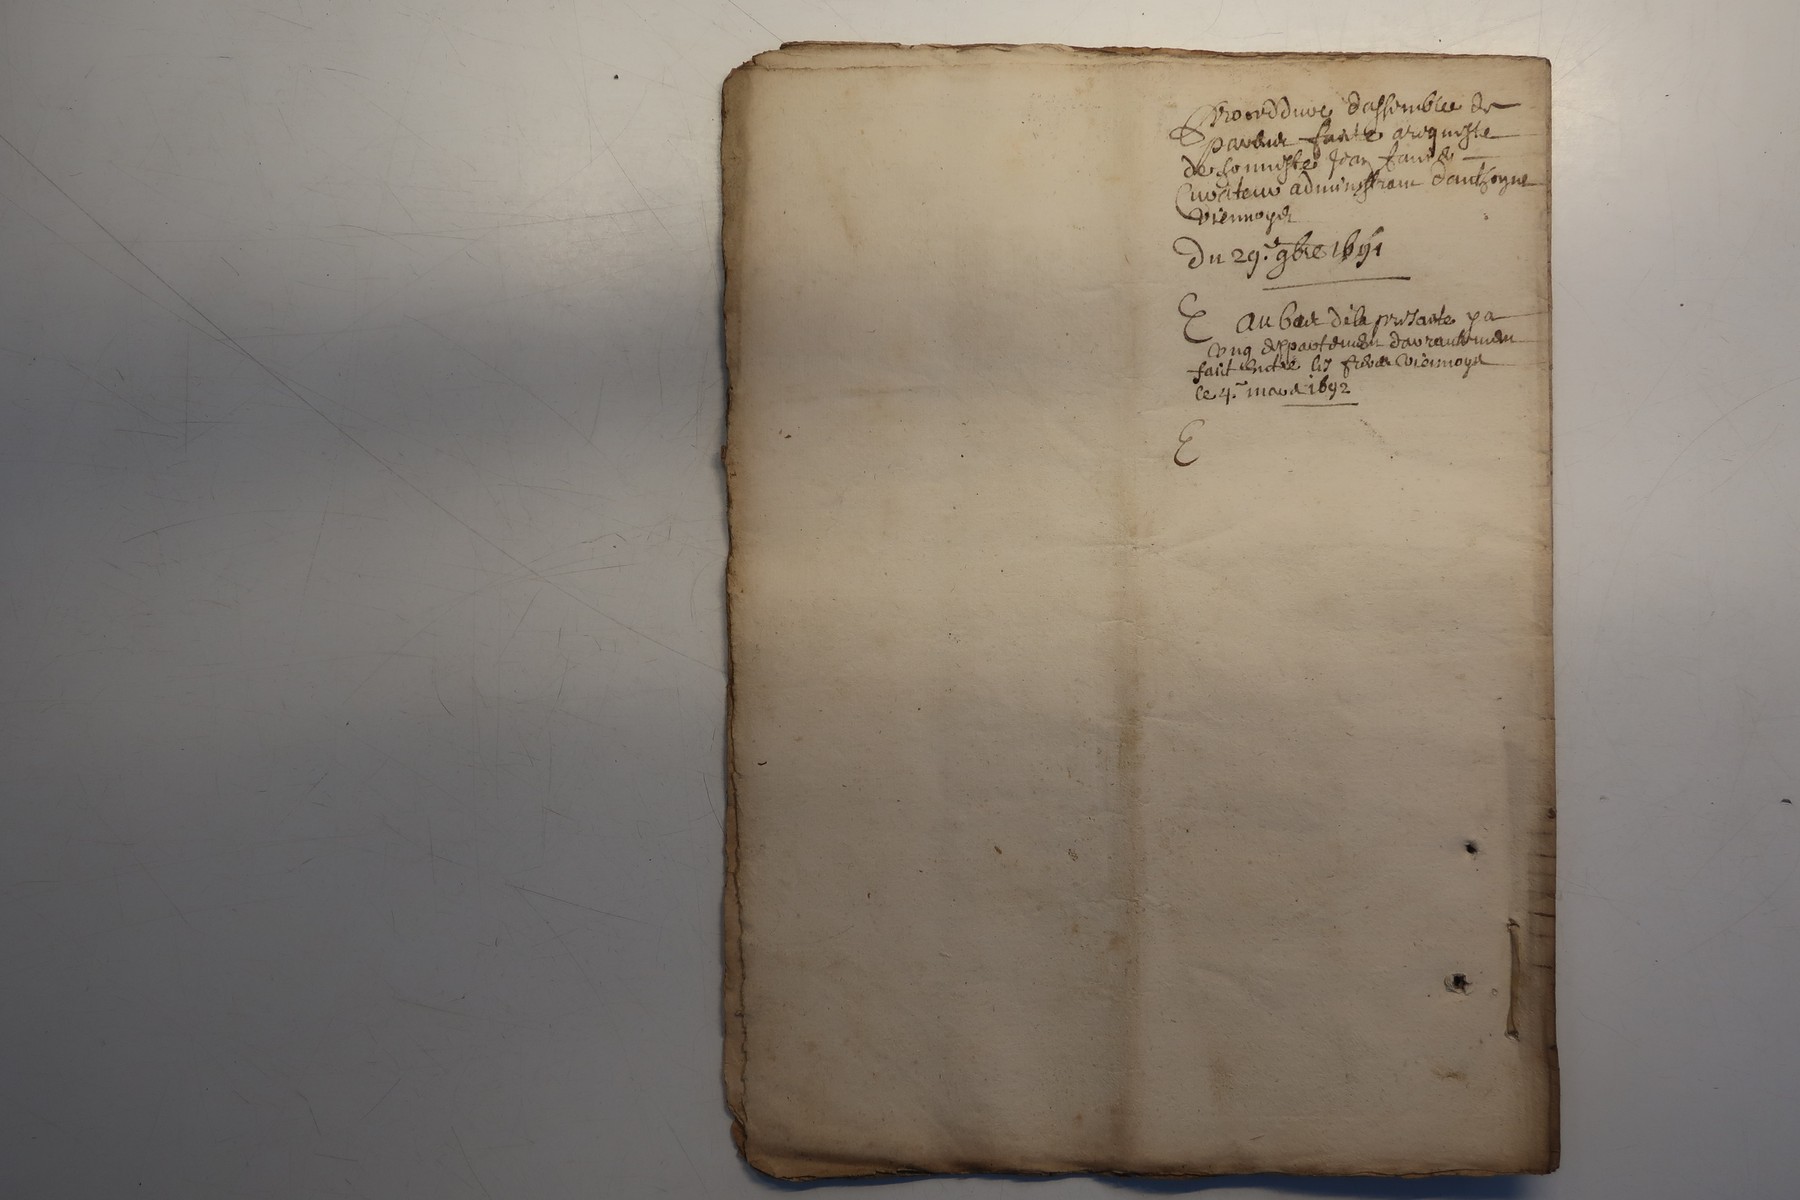 Proceddure dassemblee de
parens faite arequeste
de honneste Jean faure
Curateur administrant danthoyne
viennoys
Du 29.e 9bre 1691
Au bas de la presante ya
ung deppartement davrantemen
fait entre les freres viennoys
le 4.e mars 1692